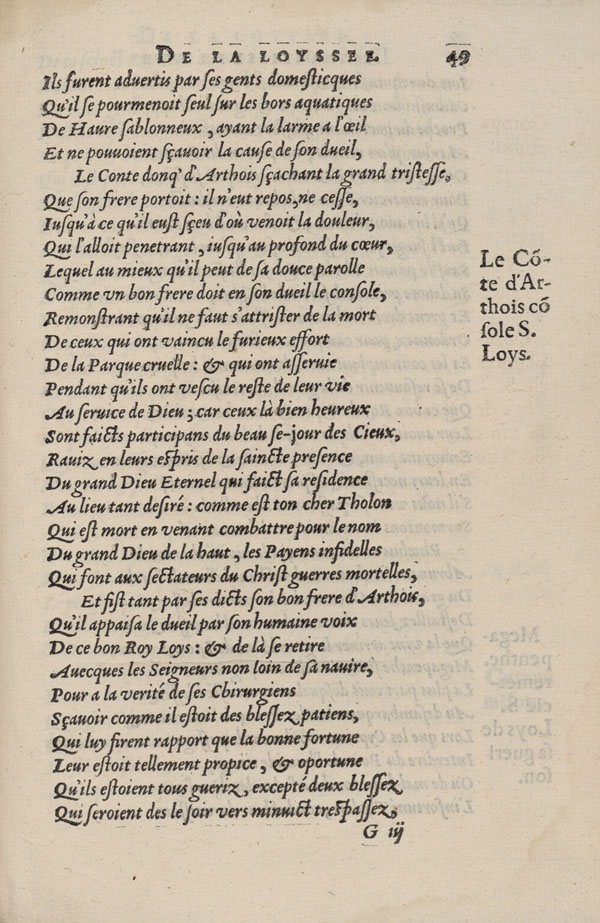 DE LA LOYSSEE. 49
Ils furent aduertis par ses gents domesticques
Qu'il se pourmenoit seul sur les bors aquatiques
De Haure sablonneux, ayant la larme a l'œil
Et ne pouuoient sçauoir la cause de son dueil,
Le Conte donq' d'Arthois sçachant la grand tristesse,
Que son frere portoit: il n'eut repos, ne cesse,
Iusqu'à ce qu'il eust sçeu d'où venoit la douleur,
Qui l'alloit penetrant, iusqu'au profond du cœur,
Lequel au mieux qu'il peut de sa douce parolle
Comme vn bon frere doit en son dueil le console,
Remonstrant qu'il ne faut s'attrister de la mort
De ceux qui ont vaincu le furieux effort
De la Parque cruelle: & qui ont asseruie
Pendant qu'ils ont vescu le reste de leur vie
Au seruice de Dieu; car ceux là bien heureux
Sont faicts participans du beau se-jour des Cieux,
Rauiz en leurs espris de la saincte presence
Du grand Dieu Eternel qui faict sa residence
Au lieu tant desiré: comme est ton cher Tholon
Qui est mort en venant combattre pour le nom
Du grand Dieu de la haut, les Payens infidelles
Qui font aux sectateurs du Christ guerres mortelles,
Et fist tant par ses dicts son bon frere d'Arthois,
Qu'il appaisa le dueil par son humaine voix
De ce bon Roy Loys: & de là se retire
Auecques les Seigneurs non loin de sa nauire,
Pour a la verité de ses Chirurgiens
Sçauoir comme il estoit des blessez patiens,
Qui luy firent rapport que la bonne fortune
Leur estoit tellement propice, & oportune
Qu'ils estoient tous gueriz, excepté deux blessez
Qui seroient des le soir vers minuict trespassez,
G iij
Le Cõ-
te d'Ar-
thois cõ
sole S.
Loys.